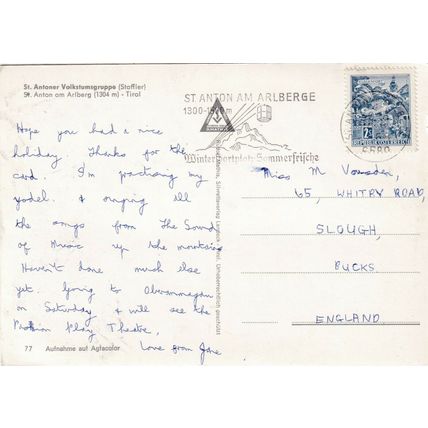 St. Antoner Volkstumsgruppe (Stoffler)
St. Anton am Arlberg (1304 m) - Tirol
Hope you had a nice
holiday. Thanks for the
card. I'm practising my
yodel. & singing all
the songs from The Sound
of Music up the mountains
Haven't done much else
yet. Going to Oberammagau
on Saturday & will see the
Passion Play Theatre.
Love from Jane
77 Aufnahme auf Agfacolor
ST. ANTON AM ARLBERGE
1300-
Wintersportplatz-Sommerfrische
2S
REPUBLIK ÖSTERREICH
6580
Miss M Vousden,
65, WHITBY ROAD,
SLOUGH,
BUCKS
ENGLAND